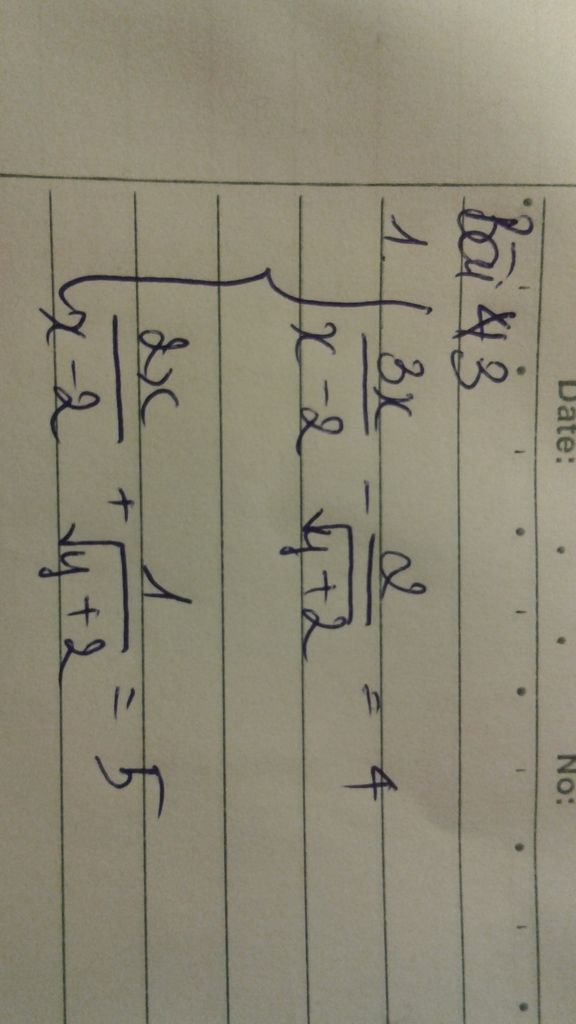 Date: No:
bài 3
1. { 3x/(x-2) - 2/√(y+2) = 4
2x/(x-2) + 1/√(y+2) = 5